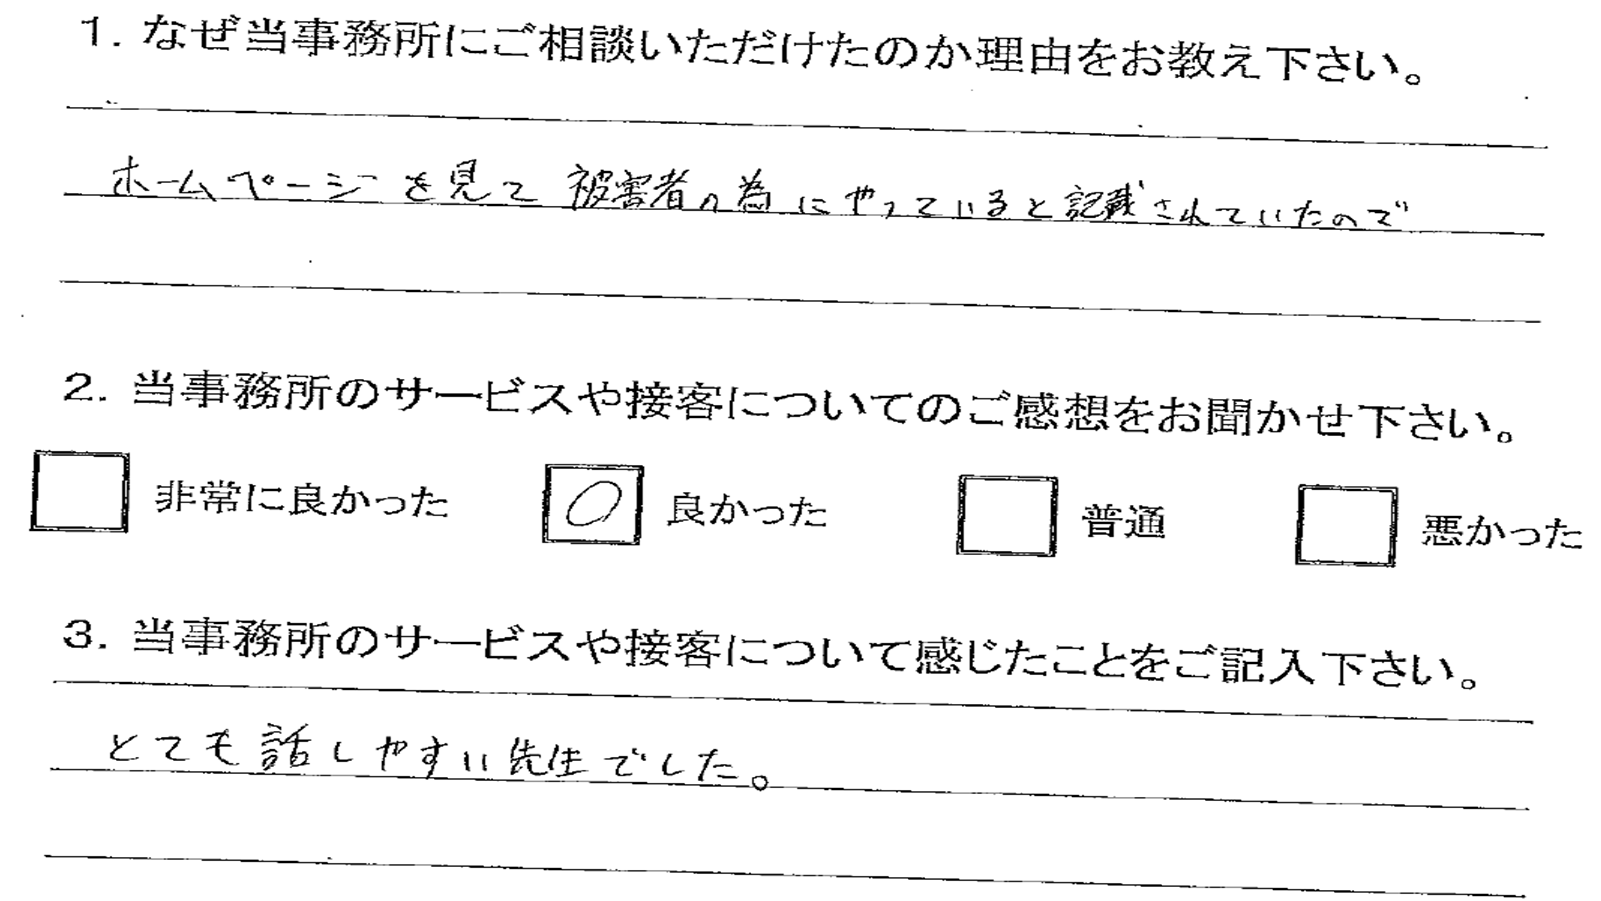 1. なぜ当事務所にご相談いただけたのか理由をお教え下さい。
ホームページを見て被害者の為にやっていると記載されていたので
2. 当事務所のサービスや接客についてのご感想をお聞かせ下さい。
非常に良かった 〇 良かった 普通 悪かった
3. 当事務所のサービスや接客について感じたことをご記入下さい。
とても話しやすい先生でした。